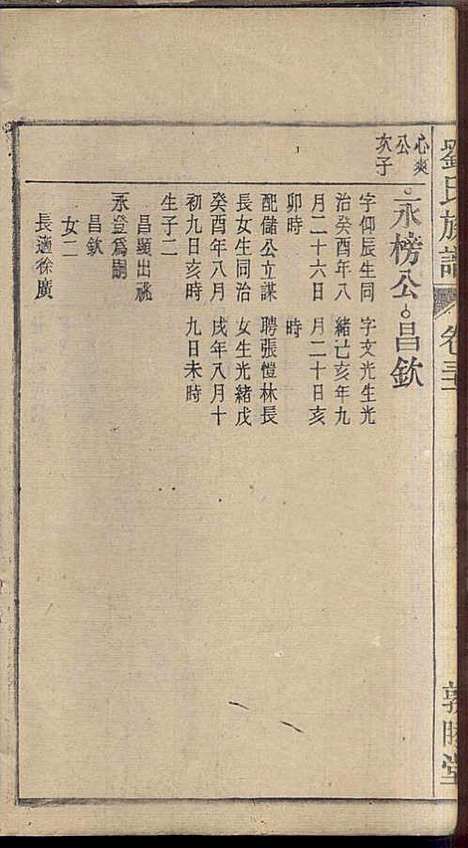 劉氏族譜
卷三
敦睦堂
心爽
公
次子
永榜公
字仰辰生同
治癸酉年八
月二十六日
卯時
配儲公立謀
長女生同治
癸酉年八月
初九日亥時
生子二
昌顯出祧
永登爲嗣
昌欽
女二
長適徐廣
昌欽
字文光生光
緒己亥年九
月二十日亥
時
聘張愷林長
女生光緒戊
戌年八月十
九日未時